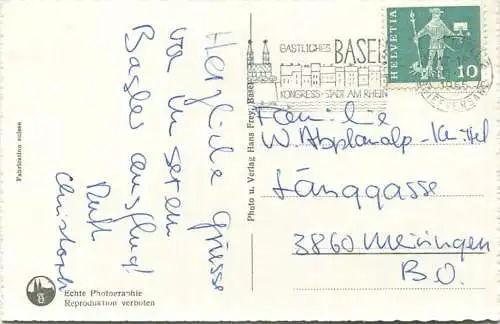 Herzliche Grüsse
von unserem
Basler Ausflug!
Ruth
Christoph
Fabrication suisse
Echte Photographie
Reproduktion verboten
Photo u. Verlag Hans Frey, Basel
GASTLICHES BASEL
KONGRESS-STADT AM RHEIN
HELVETIA
10
Familie
W. Abplanalp-
Länggasse
3860 Meiringen
B.O.